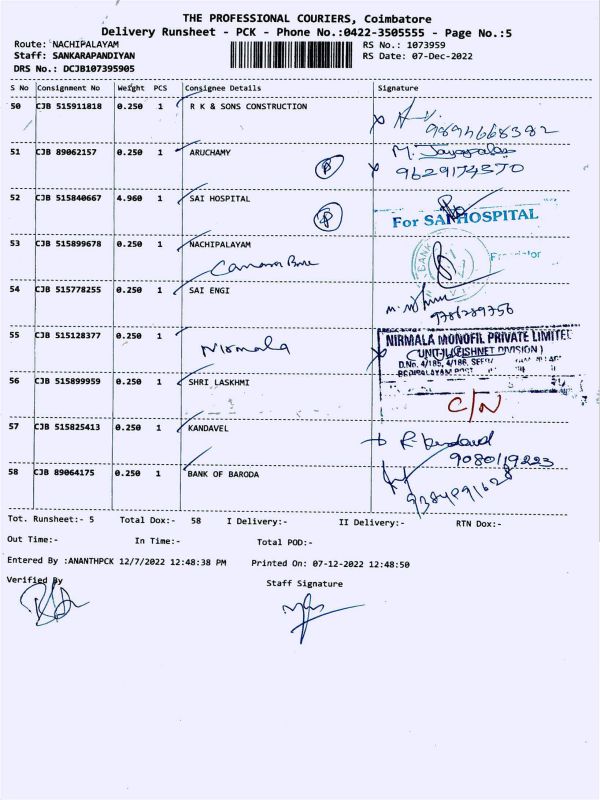 THE PROFESSIONAL COURIERS, Coimbatore
Delivery Runsheet - PCK - Phone No.:0422-3505555 - Page No.:5
Route: NACHIPALAYAM
RS No.: 1073959
Staff: SANKARAPANDIYAN
RS Date: 07-Dec-2022
DRS No.: DCJB107395905
S No Consignment No Weight PCS Consignee Details Signature
50 CJB 515911818 0.250 1 R K & SONS CONSTRUCTION
9894668382
51 CJB 89062157 0.250 1 ARUCHAMY M.
9629174370
52 CJB 515840667 4.960 1 SAI HOSPITAL
For SAI HOSPITAL
53 CJB 515899678 0.250 1 NACHIPALAYAM
54 CJB 515778255 0.250 1 SAI ENGI
9786289756
55 CJB 515128377 0.250 1
Nirmala
NIRMALA MONOFIL PRIVATE LIMITED
(UNIT-II, (FISHNET DIVISION)
D.No. 4/185, 4/186,
56 CJB 515899959 0.250 1 SHRI LASKHMI
C/N
57 CJB 515825413 0.250 1 KANDAVEL
9080119223
58 CJB 89064175 0.250 1 BANK OF BARODA
Tot. Runsheet:- 5 Total Dox:- 58 I Delivery:- II Delivery:- RTN Dox:-
Out Time:- In Time:- Total POD:-
Entered By :ANANTHPCK 12/7/2022 12:48:38 PM Printed On: 07-12-2022 12:48:50
Verified By Staff Signature